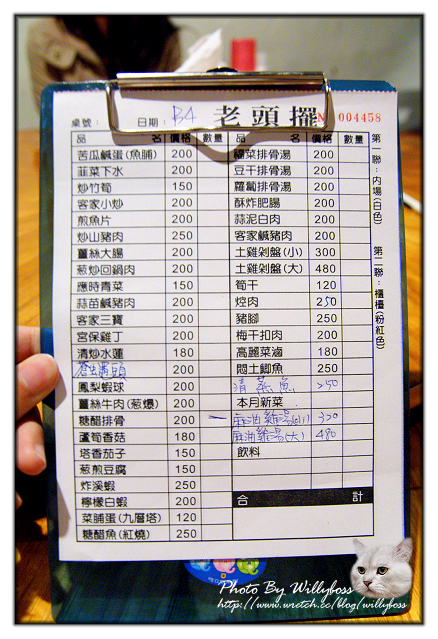 桌號: 日期: B4 老頭擺 No 004458
品名 價格 數量 品名 價格 數量
苦瓜鹹蛋(魚脯) 200 福菜排骨湯 200
韮菜下水 200 豆干排骨湯 200
炒竹筍 150 蘿蔔排骨湯 200
客家小炒 200 酥炸肥腸 200
煎魚片 200 蒜泥白肉 200
炒山豬肉 250 客家鹹豬肉 200
薑絲大腸 200 土雞剁盤(小) 300
葱炒回鍋肉 200 土雞剁盤(大) 480
應時青菜 150 筍干 120
蒜苗鹹豬肉 200 焢肉 250
客家三寶 200 豬腳 250
宮保雞丁 200 梅干扣肉 200
清炒水蓮 180 高麗菜滷 180
200 悶土鯽魚 250
鳳梨蝦球 200 清蒸魚 250
薑絲牛肉(葱爆) 200 本月新菜
糖醋排骨 200 麻油雞湯(小) 320
蘆筍香菇 180 麻油雞湯(大) 480
塔香茄子 150 飲料
葱煎豆腐 150
炸溪蝦 250 合計
檸檬白蝦 200
菜脯蛋(九層塔) 120
糖醋魚(紅燒) 250
第一聯:內場(白色)
第二聯:櫃檯(粉紅色)
Photo By Willyboss
http://www.wretch.cc/blog/willyboss